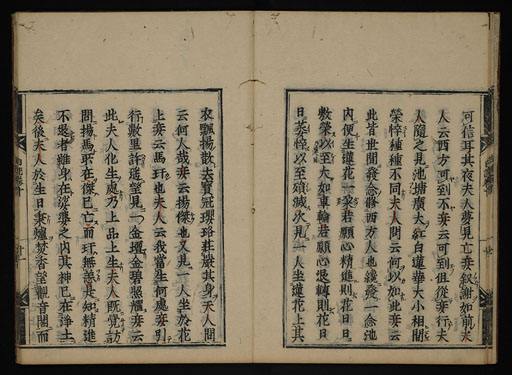 河信耳其夜夫人夢見亡妾叙謝如前夫
人云西方可到不妾云可到但從妾行夫
人隨之見池塘廣大紅白蓮華大小相間
榮悴種種不同夫人問云何以如此妾云
此皆世間發念修西方人也纔發一念池
內便生蓮花一朵若願心精進則花日日
敷榮以至大如車輪若願心退轉則花日
日萎悴以至殞滅次見一人坐蓮花上其
衣飄揚散去寶冠瓔珞莊嚴其身夫人問
云何人哉妾云揚傑也又見一人坐於花
上妾云馬玗也夫人云我當生何處妾引
行數里許遙望見一金壇金碧照耀妾云
此夫人化生處乃上品上生夫人既覺訪
問揚馬所在傑已亡而玗無恙是知精進
不退者雖身在娑婆之內其神已在淨土
矣後夫人於生日秉爐焚香望觀音閣而